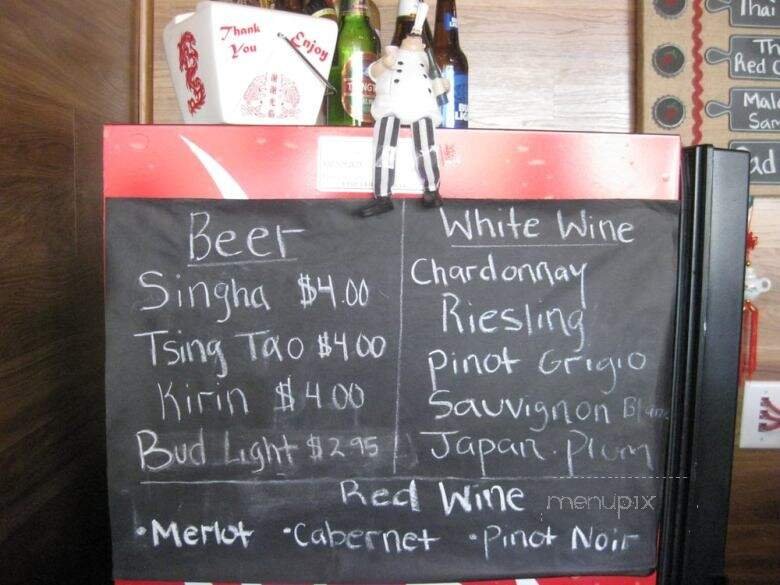 Thank
You
Enjoy
謝謝光臨
Thai
Th
Red C
Mala
Sam
ad
Beer
Singha $4.00
Tsing Tao $4.00
Kirin $4.00
Bud Light $2.95
White Wine
Chardonnay
Riesling
Pinot Grigio
Sauvignon Blanc
Japan. Plum
Red Wine
•Merlot •Cabernet •Pinot Noir
menupix